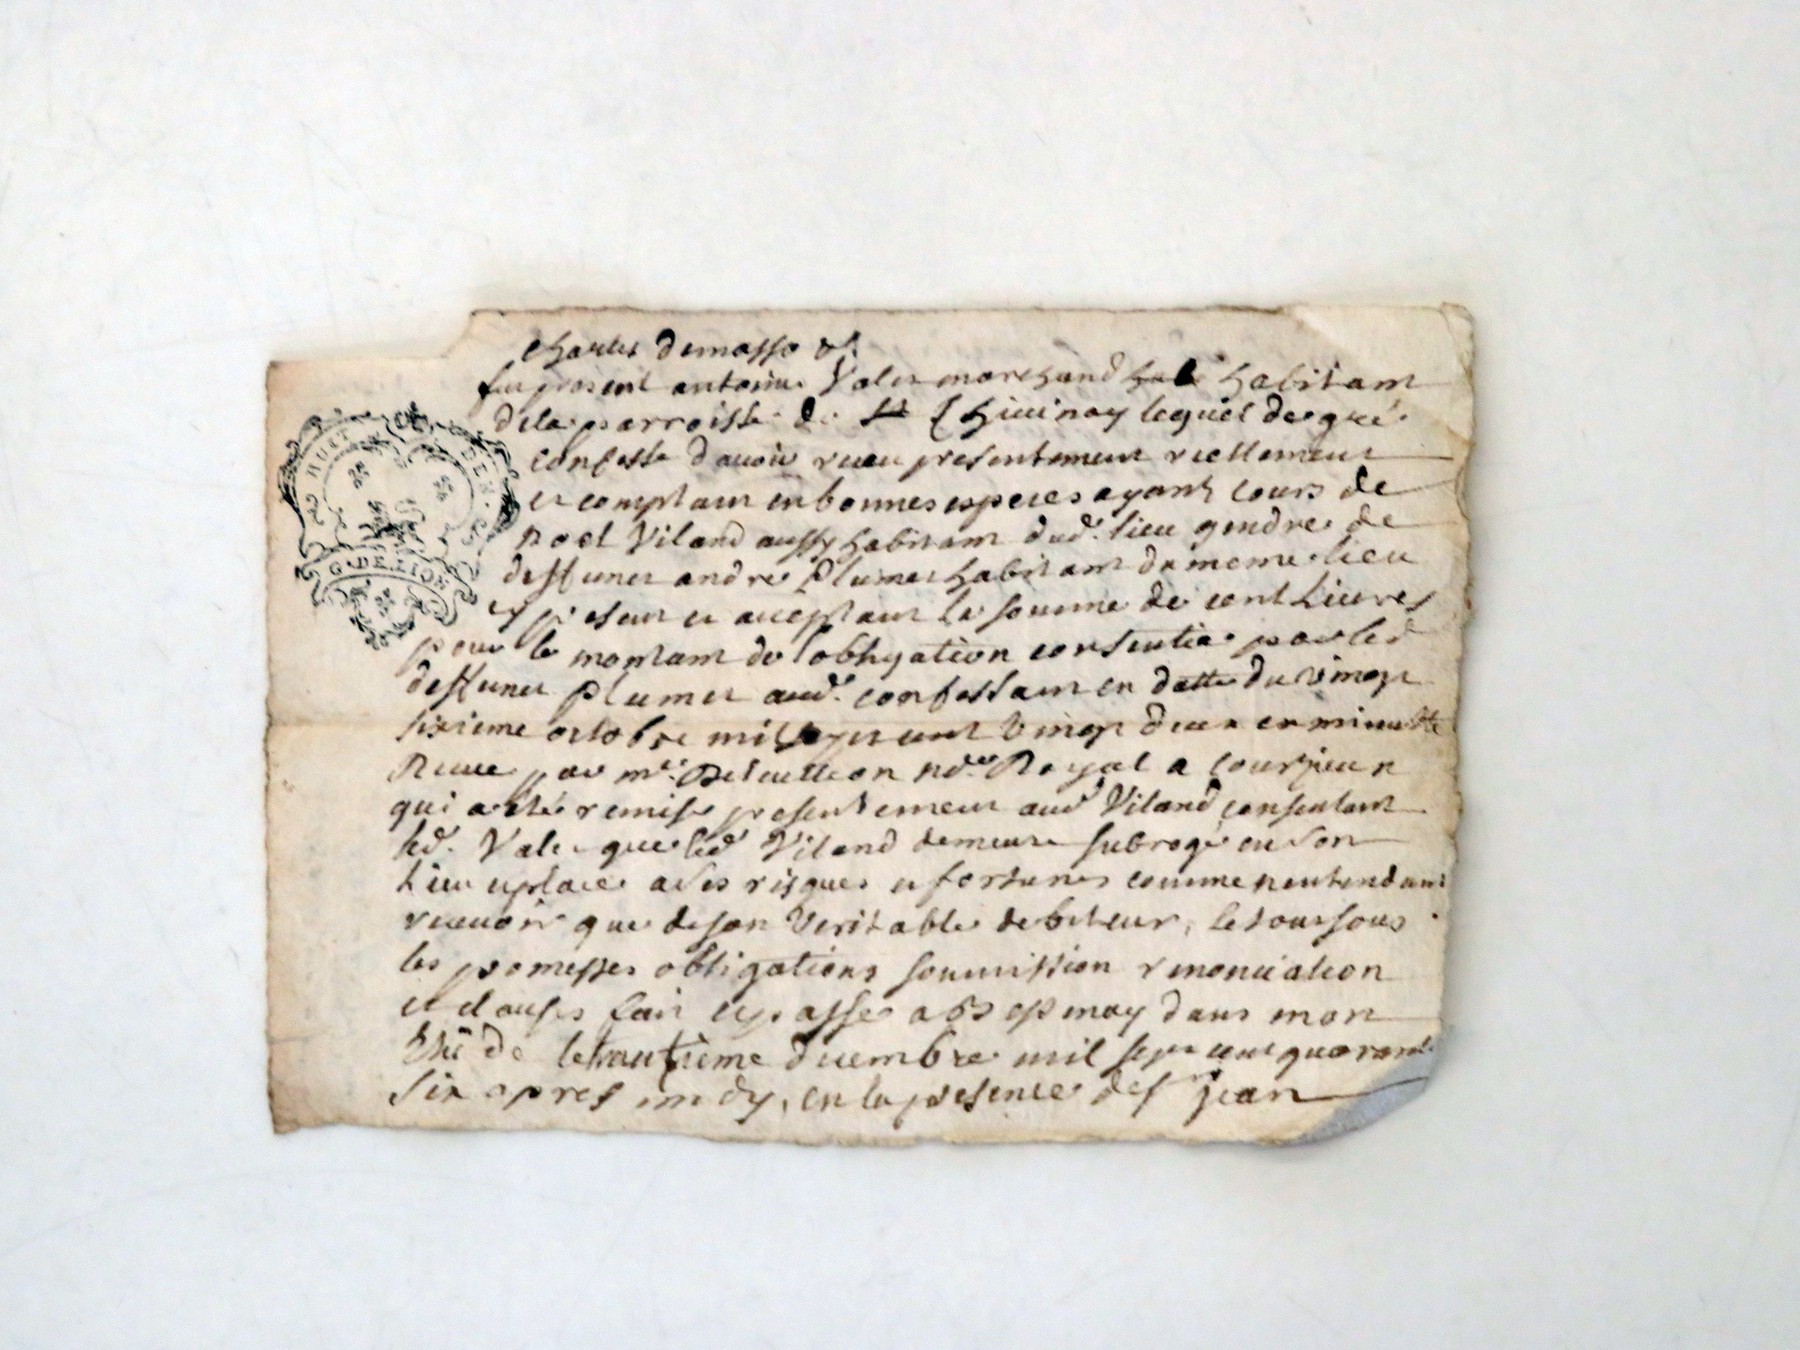 HUIT DEN.
G. DE LION
Charles Demasso &
fut present antoine Valet marchand habitant
de la parroisse de Thivinay lequel de gré
confesse davoir receu presentement reellement
et comptant en bonnes especes ayant cours de
noel Viland aussy habitant dud. lieu gendre de
deffunct andre Plumet habitant du meme lieu
et present et acceptant la somme de cent Livres
pour le montant de lobligation consentie par led
deffunct Plumet aud. confessant en datte du vingt
sixieme octobre mil sept cent vingt deux en minutte
Receue par me. not. Royal a Courzieux
qui a été remise presentement aud Viland consentant
led. Valet que led Viland demeure subrogé en son
Lieu et place a ses risques et fortunes comme nentendant
recevoir que de son veritable debiteur, le tout sous
les promesses obligations soumission renonciation
et clauses fait et passé a dans mon
Etude le huitieme decembre mil sept cent quarante
six apres midy, en la presence de sr jean